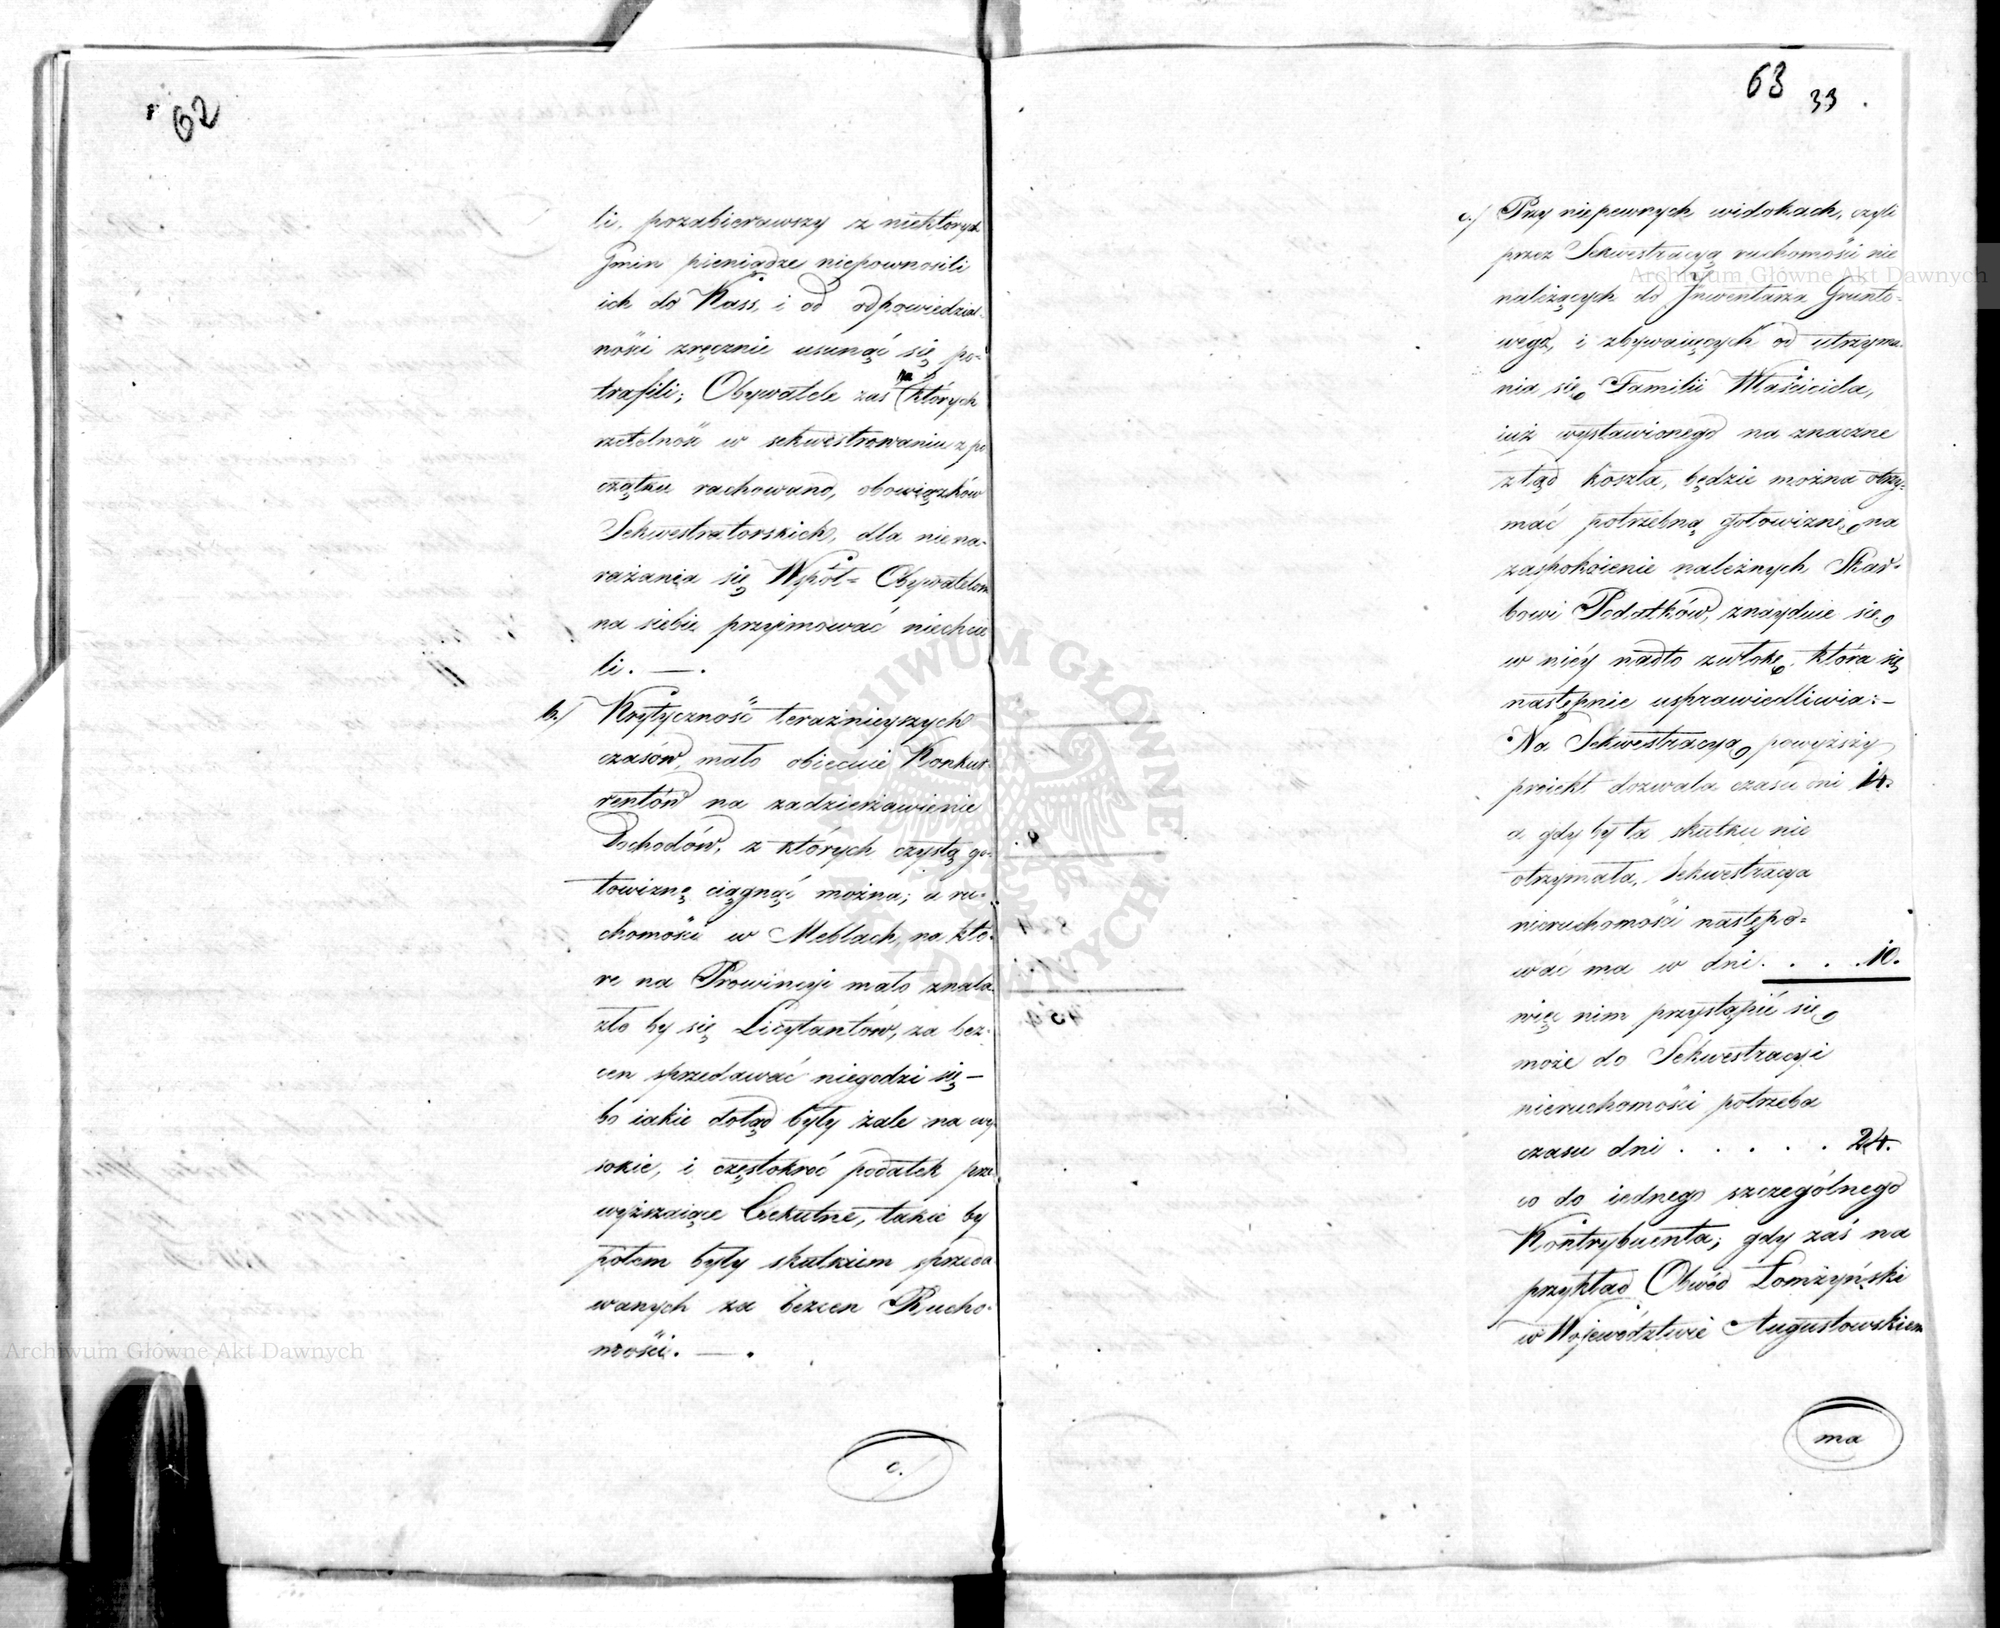 62
li, pozabierawszy z niektórych
Gmin pieniądze niepownosili
ich do Kass, i od odpowiedzial-
ności zręcznie usunąć się po-
trafili; Obywatele zaś na których
rzetelność w sekwestrowaniu z po
czątku rachowano, obowiązków
Sekwestratorskich, dla niena-
rażania się Współ= Obywatelom
na siebie przyjmować niechcie
li. — .
b./ Krytyczność teraźnieyszych
czasów, mało obiecuie Konkur-
rentów na zadzierżawienie
Dochodów, z których czystą go-
towiznę ciągnąć można; a ru-
chomości w Meblach, na któ-
re na Prowincyi mało znala-
zło by się Licytantów, za bez-
cen sprzedawać niegodzi się —
bo iakie dotąd były żale na wy
sokie, i częstokroć podatek prze
wyższaiące Exekutne, takie by
potem były skutkiem sprzeda
wanych za bezcen Rucho-
mości. — .
c./
63
33
c./ Przy niepewnych widokach, czyli
przez Sekwestracyą ruchomości nie
należących do Inwentarza Grunto-
wego, i zbywaiących od utrzyma-
nia się Familii Właściciela,
iuż wystawionego na znaczne
ztąd koszta, będzie można otrzy-
mać potrzebną gotowiznę na
zaspokoienie należnych Skar-
bowi Podatków, znayduie się
w niéy nadto zwłokę, która się
następnie usprawiedliwia: —
Na Sekwestracyą powyższy
proiekt dozwala czasu dni 14.
a gdy by ta skutku nie
otrzymała, Sekwestracya
nieruchomości następo=
wać ma w dni . . . . 10.
więc nim przystąpić się
może do Sekwestracyi
nieruchomości potrzeba
czasu dni . . . . . 24.
co do iednego szczególnego
Kontrybuenta; gdy zaś na
przykład Obwód Łomżyński
w Województwie Augustowskiem
ma
Archiwum Główne Akt Dawnych
Archiwum Główne Akt Dawnych
ARCHIWUM GŁÓWNE AKT DAWNYCH